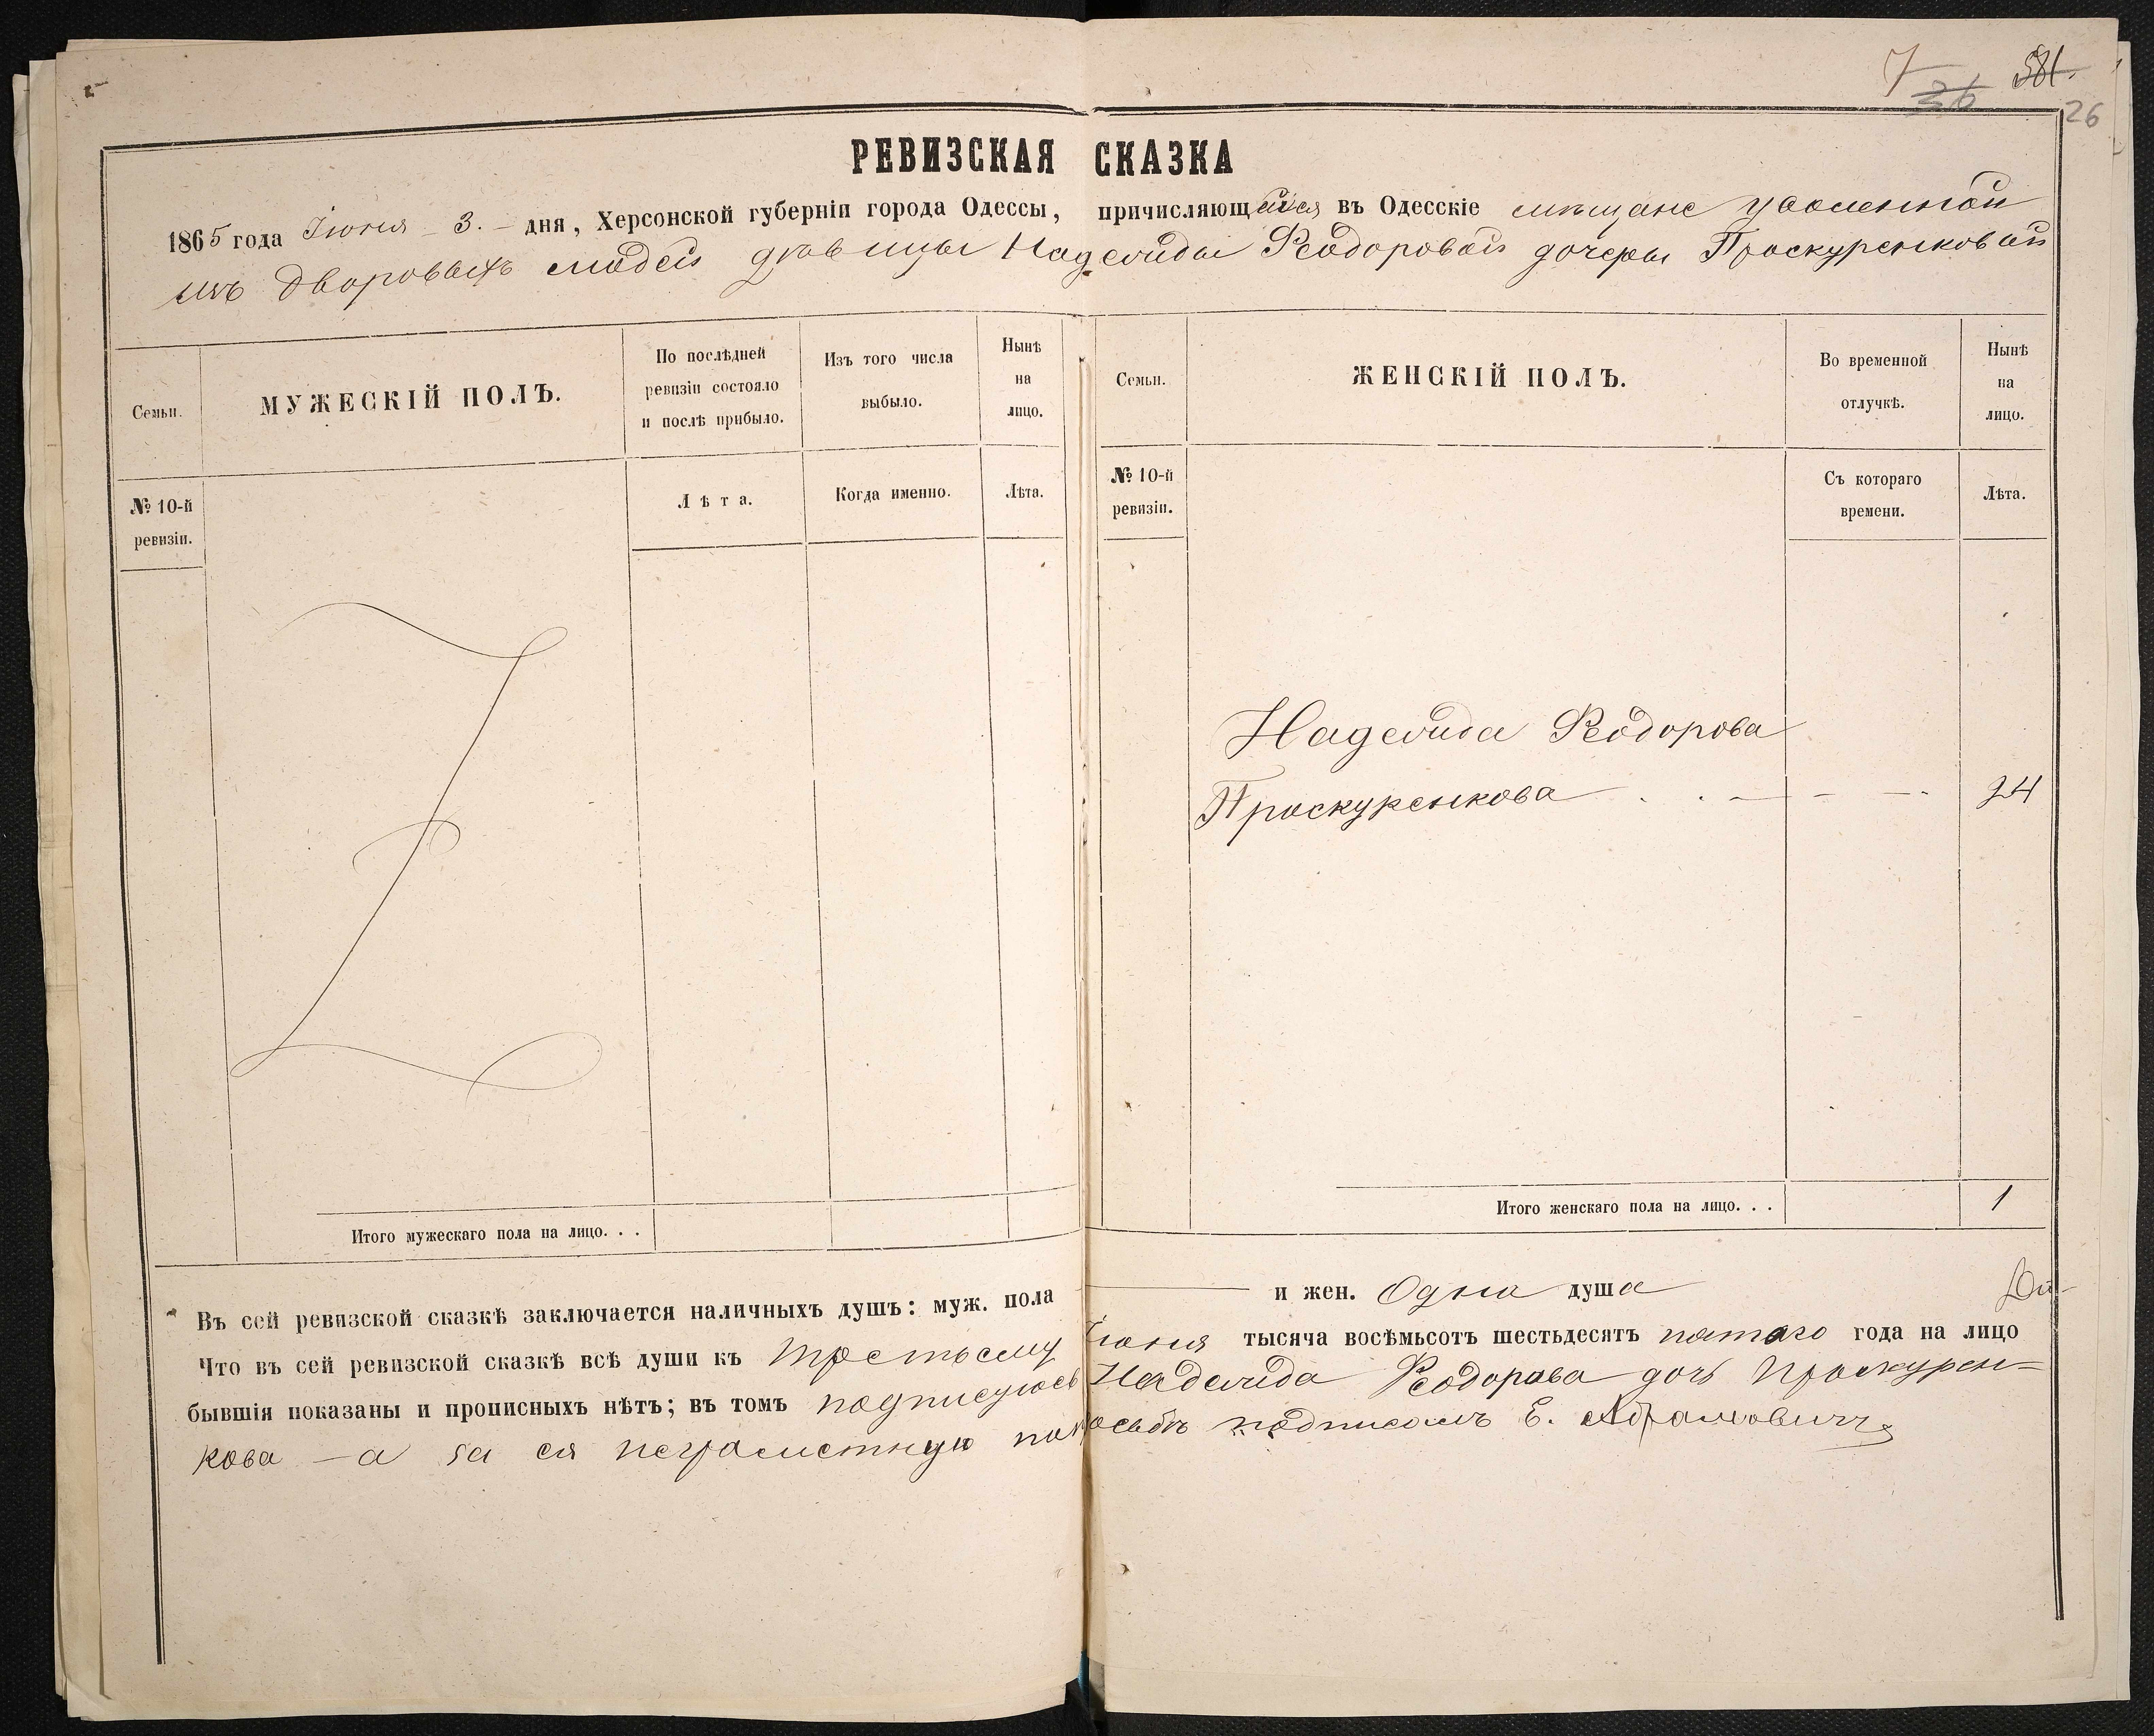 7 36 581.
26
РЕВИЗСКАЯ СКАЗКА
1865 года Іюня 3. дня, Херсонской губерніи города Одессы, причисляющейся въ Одесскіе мѣщане уволенной
изъ дворовыхъ людей дѣвицы Надежды Ѳеодоровой дочери Проскуренковой
Семьи.
МУЖЕСКІЙ ПОЛЪ.
По послѣдней
ревизіи состояло
и послѣ прибыло.
Изъ того числа
выбыло.
Нынѣ
на
лицо.
Семьи.
ЖЕНСКІЙ ПОЛЪ.
Во временной
отлучкѣ.
Нынѣ
на
лицо.
№ 10-й
ревизіи.
Лѣта.
Когда именно.
Лѣта.
№ 10-й
ревизіи.
Съ котораго
времени.
Лѣта.
Надежда Ѳеодорова
Проскуренкова . . — — —. 24
Итого мужескаго пола на лицо. . .
Итого женскаго пола на лицо. . . 1
Въ сей ревизской сказкѣ заключается наличныхъ душъ: муж. пола — и жен. Одна душа
Что въ сей ревизской сказкѣ всѣ души къ третьему Іюня тысяча восѣмьсотъ шестьдесятъ пятаго года на лицо
бывшія показаны и прописныхъ нѣтъ; въ томъ подписуюсь Надежда Ѳеодорова дочь Проскурен=
кова — а за ея неграмотную по просьбѣ подписалъ Е. Абрамовичъ